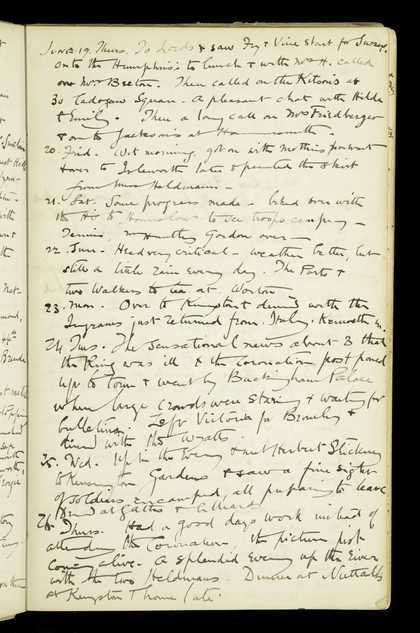 JUNE 19. Thurs. To Lords & saw Fry & Vine start for Surrey.
onto the Humphris's to lunch & with Mrs H. called
on Mrs Beeton. Then called on the Kitsons at
30 Cadogan Square. A pleasant chat with Hilda
& Emily. Then a long call on Mrs Friedberger
& on to Jackson's at Hammersmith.
20. Frid. Wet morning, got on with mothers portrait
Hover to Isleworth later & painted the skirt
from Miss Haldmann -
21. Sat. Some progress made - biked over with
the to Hounslow to see troops camping -
Dennis, Gordon over -
22. Sun. Head very critical - weather better, but
still a little rain every day. The &
two Walkers to tea at Worton
23. Mon. Over to Kingston & dined with the
Ingrams just returned from Italy. Kenneth in.
24. Tues. The sensational news about 3 that
the King was ill & the Coronation postponed
up to town & went by Buckingham Palace
when large crowds were staring & waiting for
bulletins. Left Victoria for Bromley &
dined with the Wyatts.
25. Wed. Up in the evening & met Herbert Stickney
to Kensington Gardens & saw a fine sight
of soldiers encamped, all preparing to leave
Dined at Gattis &
26. Thurs. Had a good days work instead of
attending the Coronation. The picture just
coming alive. A splendid evening up the River
with the two Haldmanns Dinner at Nuttalls
at Kingston & home late.